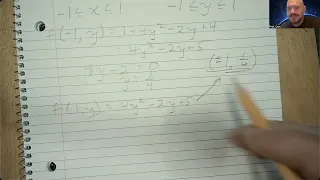 -1 ≤ x ≤ 1 -1 ≤ y ≤ 1
f(-1, y) = 1 + 4y² - 2y + 4
4y² - 2y + 5
8y - 2 = 0
(±1, 1/4)
f(1, y) = 4y² - 2y + 5